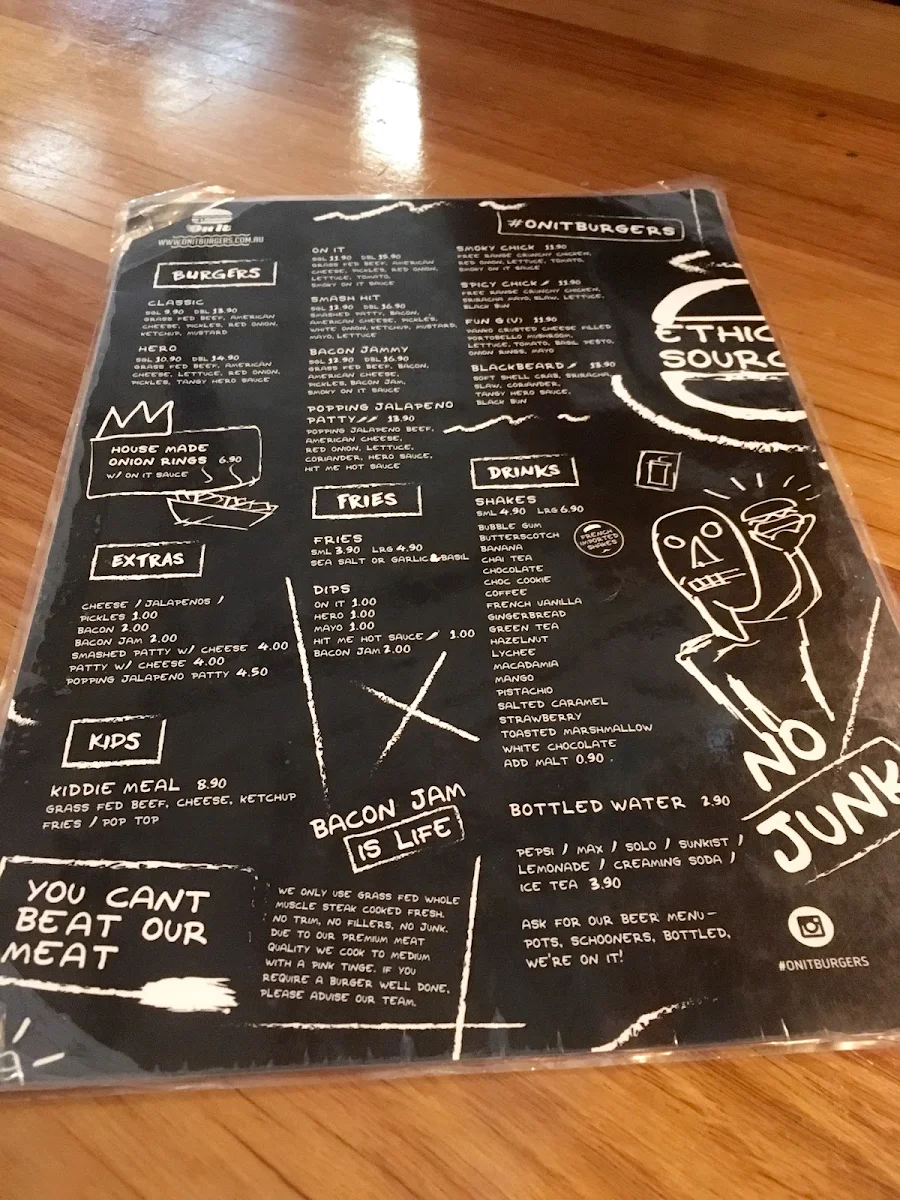 On It
WWW.ONITBURGERS.COM.AU
BURGERS
CLASSIC
SGL 9.90 DBL 13.90
GRASS FED BEEF, AMERICAN
CHEESE, PICKLES, RED ONION,
KETCHUP, MUSTARD
HERO
SGL 10.90 DBL 14.90
GRASS FED BEEF, AMERICAN
CHEESE, LETTUCE, RED ONION,
PICKLES, TANGY HERO SAUCE
HOUSE MADE
ONION RINGS 6.90
W/ ON IT SAUCE
EXTRAS
CHEESE / JALAPENOS /
PICKLES 1.00
BACON 2.00
BACON JAM 2.00
SMASHED PATTY W/ CHEESE 4.00
PATTY W/ CHEESE 4.00
POPPING JALAPENO PATTY 4.50
KIDS
KIDDIE MEAL 8.90
GRASS FED BEEF, CHEESE, KETCHUP
FRIES / POP TOP
YOU CANT
BEAT OUR
MEAT
ON IT
SGL 11.90 DBL 15.90
GRASS FED BEEF, AMERICAN
CHEESE, PICKLES, RED ONION,
LETTUCE, TOMATO,
SMOKY ON IT SAUCE
SMASH HIT
SGL 12.90 DBL 16.90
SMASHED PATTY, BACON,
AMERICAN CHEESE, PICKLES,
WHITE ONION, KETCHUP, MUSTARD,
MAYO, LETTUCE
BACON JAMMY
SGL 12.90 DBL 16.90
GRASS FED BEEF, BACON,
AMERICAN CHEESE,
PICKLES, BACON JAM,
SMOKY ON IT SAUCE
POPPING JALAPENO
PATTY 13.90
POPPING JALAPENO BEEF,
AMERICAN CHEESE,
RED ONION, LETTUCE,
CORIANDER, HERO SAUCE,
HIT ME HOT SAUCE
FRIES
FRIES
SML 3.90 LRG 4.90
SEA SALT OR GARLIC&BASIL
DIPS
ON IT 1.00
HERO 1.00
MAYO 1.00
HIT ME HOT SAUCE 1.00
BACON JAM 2.00
BACON JAM
IS LIFE
WE ONLY USE GRASS FED WHOLE
MUSCLE STEAK COOKED FRESH.
NO TRIM, NO FILLERS, NO JUNK.
DUE TO OUR PREMIUM MEAT
QUALITY WE COOK TO MEDIUM
WITH A PINK TINGE. IF YOU
REQUIRE A BURGER WELL DONE,
PLEASE ADVISE OUR TEAM.
#ONITBURGERS
SMOKY CHICK 11.90
FREE RANGE CRUNCHY CHICKEN,
RED ONION, LETTUCE, TOMATO,
SMOKY ON IT SAUCE
SPICY CHICK 11.90
FREE RANGE CRUNCHY CHICKEN,
SRIRACHA MAYO, SLAW, LETTUCE,
BLACK BUN
FUN G(U) 11.90
PANKO CRUSTED CHEESE FILLED
PORTOBELLO MUSHROOM,
LETTUCE, TOMATO, BASIL PESTO,
ONION RINGS, MAYO
BLACKBEARD 13.90
SOFT SHELL CRAB, SRIRACHA,
SLAW, CORIANDER,
TANGY HERO SAUCE,
BLACK BUN
ETHIC
SOURC
DRINKS
SHAKES
SML 4.90 LRG 6.90
BUBBLE GUM
BUTTERSCOTCH
BANANA
CHAI TEA
CHOCOLATE
CHOC COOKIE
COFFEE
FRENCH VANILLA
GINGERBREAD
GREEN TEA
HAZELNUT
LYCHEE
MACADAMIA
MANGO
PISTACHIO
SALTED CARAMEL
STRAWBERRY
TOASTED MARSHMALLOW
WHITE CHOCOLATE
ADD MALT 0.90
FRENCH
IMPORTED
SHAKES
BOTTLED WATER 2.90
PEPSI / MAX / SOLO / SUNKIST /
LEMONADE / CREAMING SODA /
ICE TEA 3.90
ASK FOR OUR BEER MENU-
POTS, SCHOONERS, BOTTLED,
WE'RE ON IT!
NO
JUNK
#ONITBURGERS